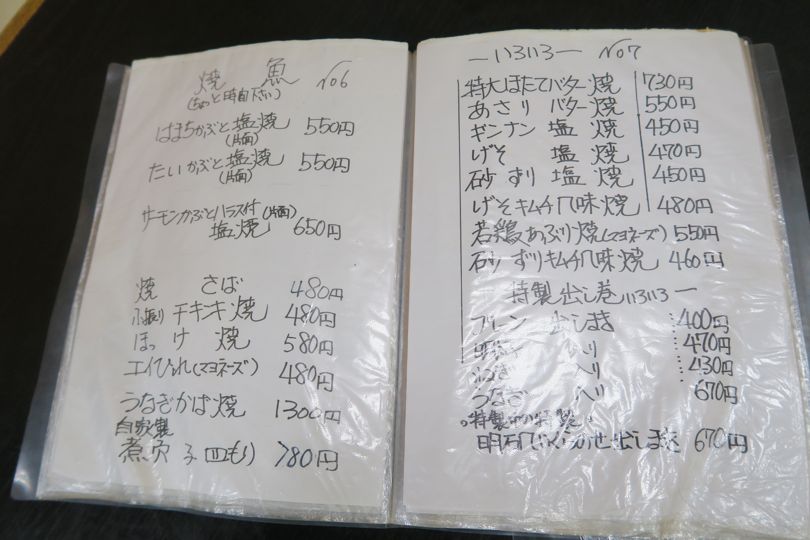 焼 魚 No6
(ちょっと時間下さい)
はまちかぶと塩焼 550円
(片面)
たいかぶと塩焼 550円
(片面)
サーモンかぶとハラス付(片面)
塩焼 650円
焼 さば 480円
小振り チキンキ焼 480円
ほっけ 焼 580円
エイひれ(マヨネーズ) 480円
うなぎかば焼 1300円
自家製
煮穴子 780円
ーいろいろー No7
特大ほたてバター焼 730円
あさり バター焼 550円
ギンナン 塩焼 450円
げそ 塩焼 470円
砂ずり 塩焼 450円
げそキムチ風味焼 480円
若鶏あぶり焼(マヨネーズ) 550円
砂ずりキムチ風味焼 460円
特製出し巻いろいろー
プレーン 出しまき 400円
明太子 入り 470円
ねぎ 入り 430円
うなぎ 入り 670円
特製中の特製
出しまき 670円